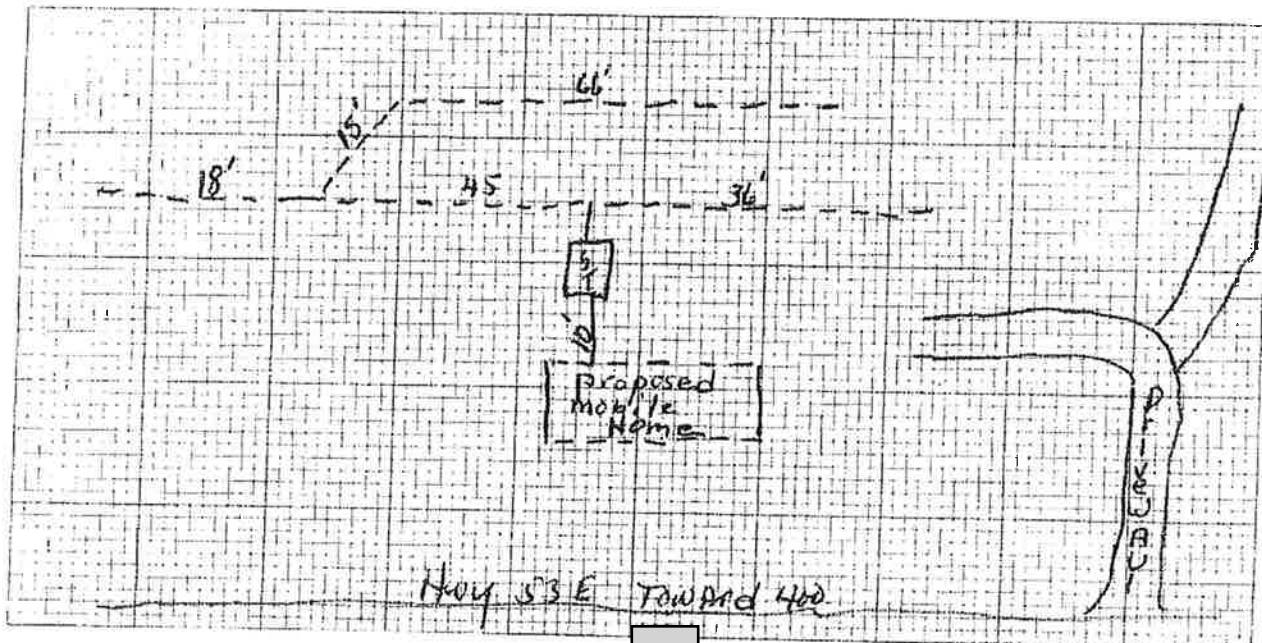 66'
15'
18'
45
36'
S/T
10'
proposed
mobile
Home
DriveWAY
Hwy 53 E Toward 400